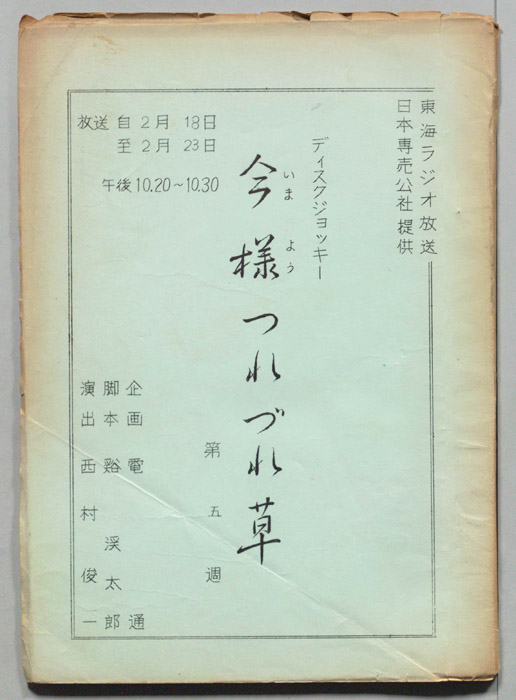 東海ラジオ放送
日本専売公社提供
ディスクジョッキー
今様つれづれ草
いまよう
第五週
放送 自 2月 18日
至 2月 23日
午後 10.20~10.30
企画 電通
脚本 谿渓太郎
演出 西村俊一